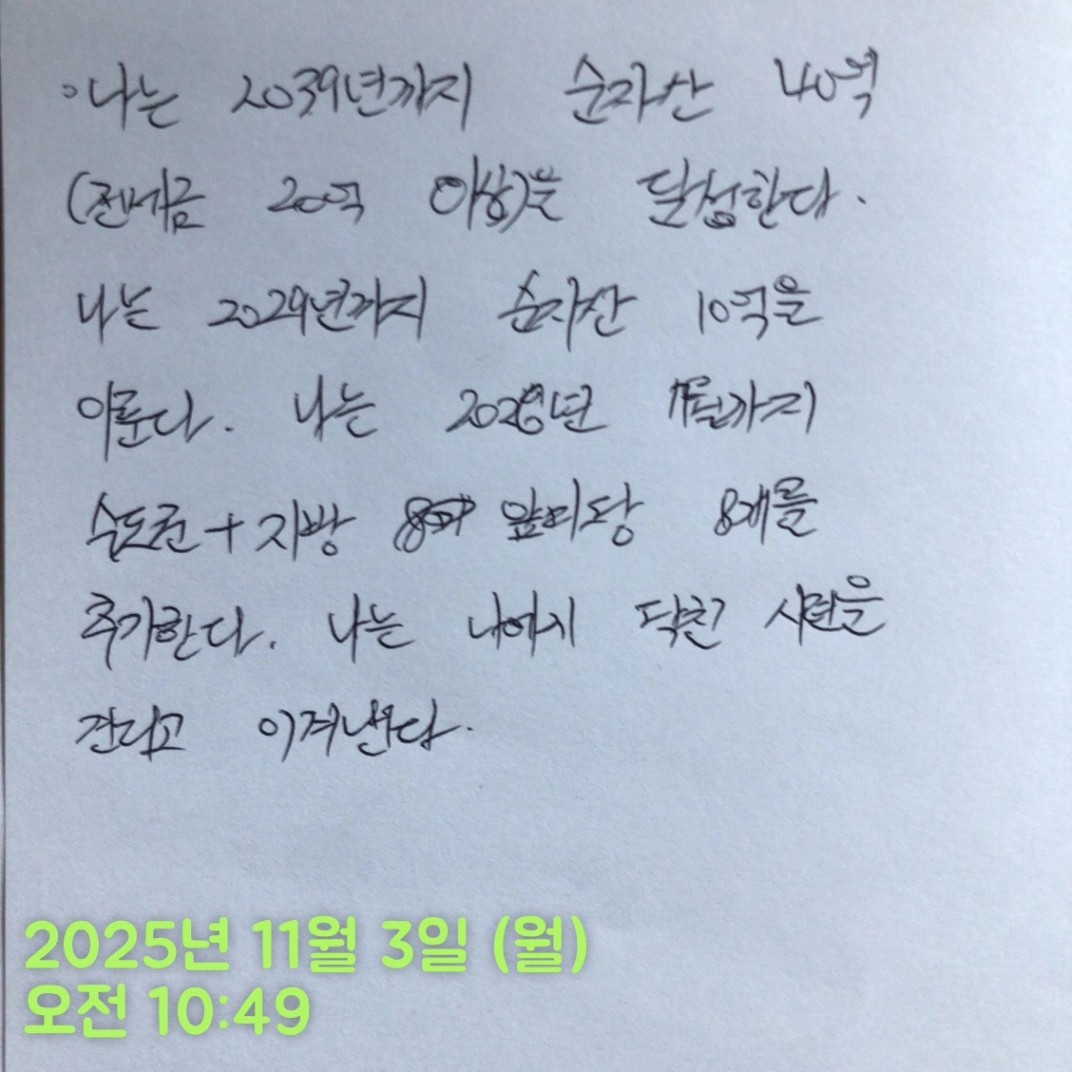 나는 2039년까지 순자산 40억
(전세금 20억 이상)을 달성한다.
나는 2029년까지 순자산 10억을
이룬다. 나는 2026년 까지
수도권+지방 앞마당 8개를
추가한다. 나는 나에게 닥친 시련을
견디고 이겨낸다.
2025년 11월 3일 (월)
오전 10:49